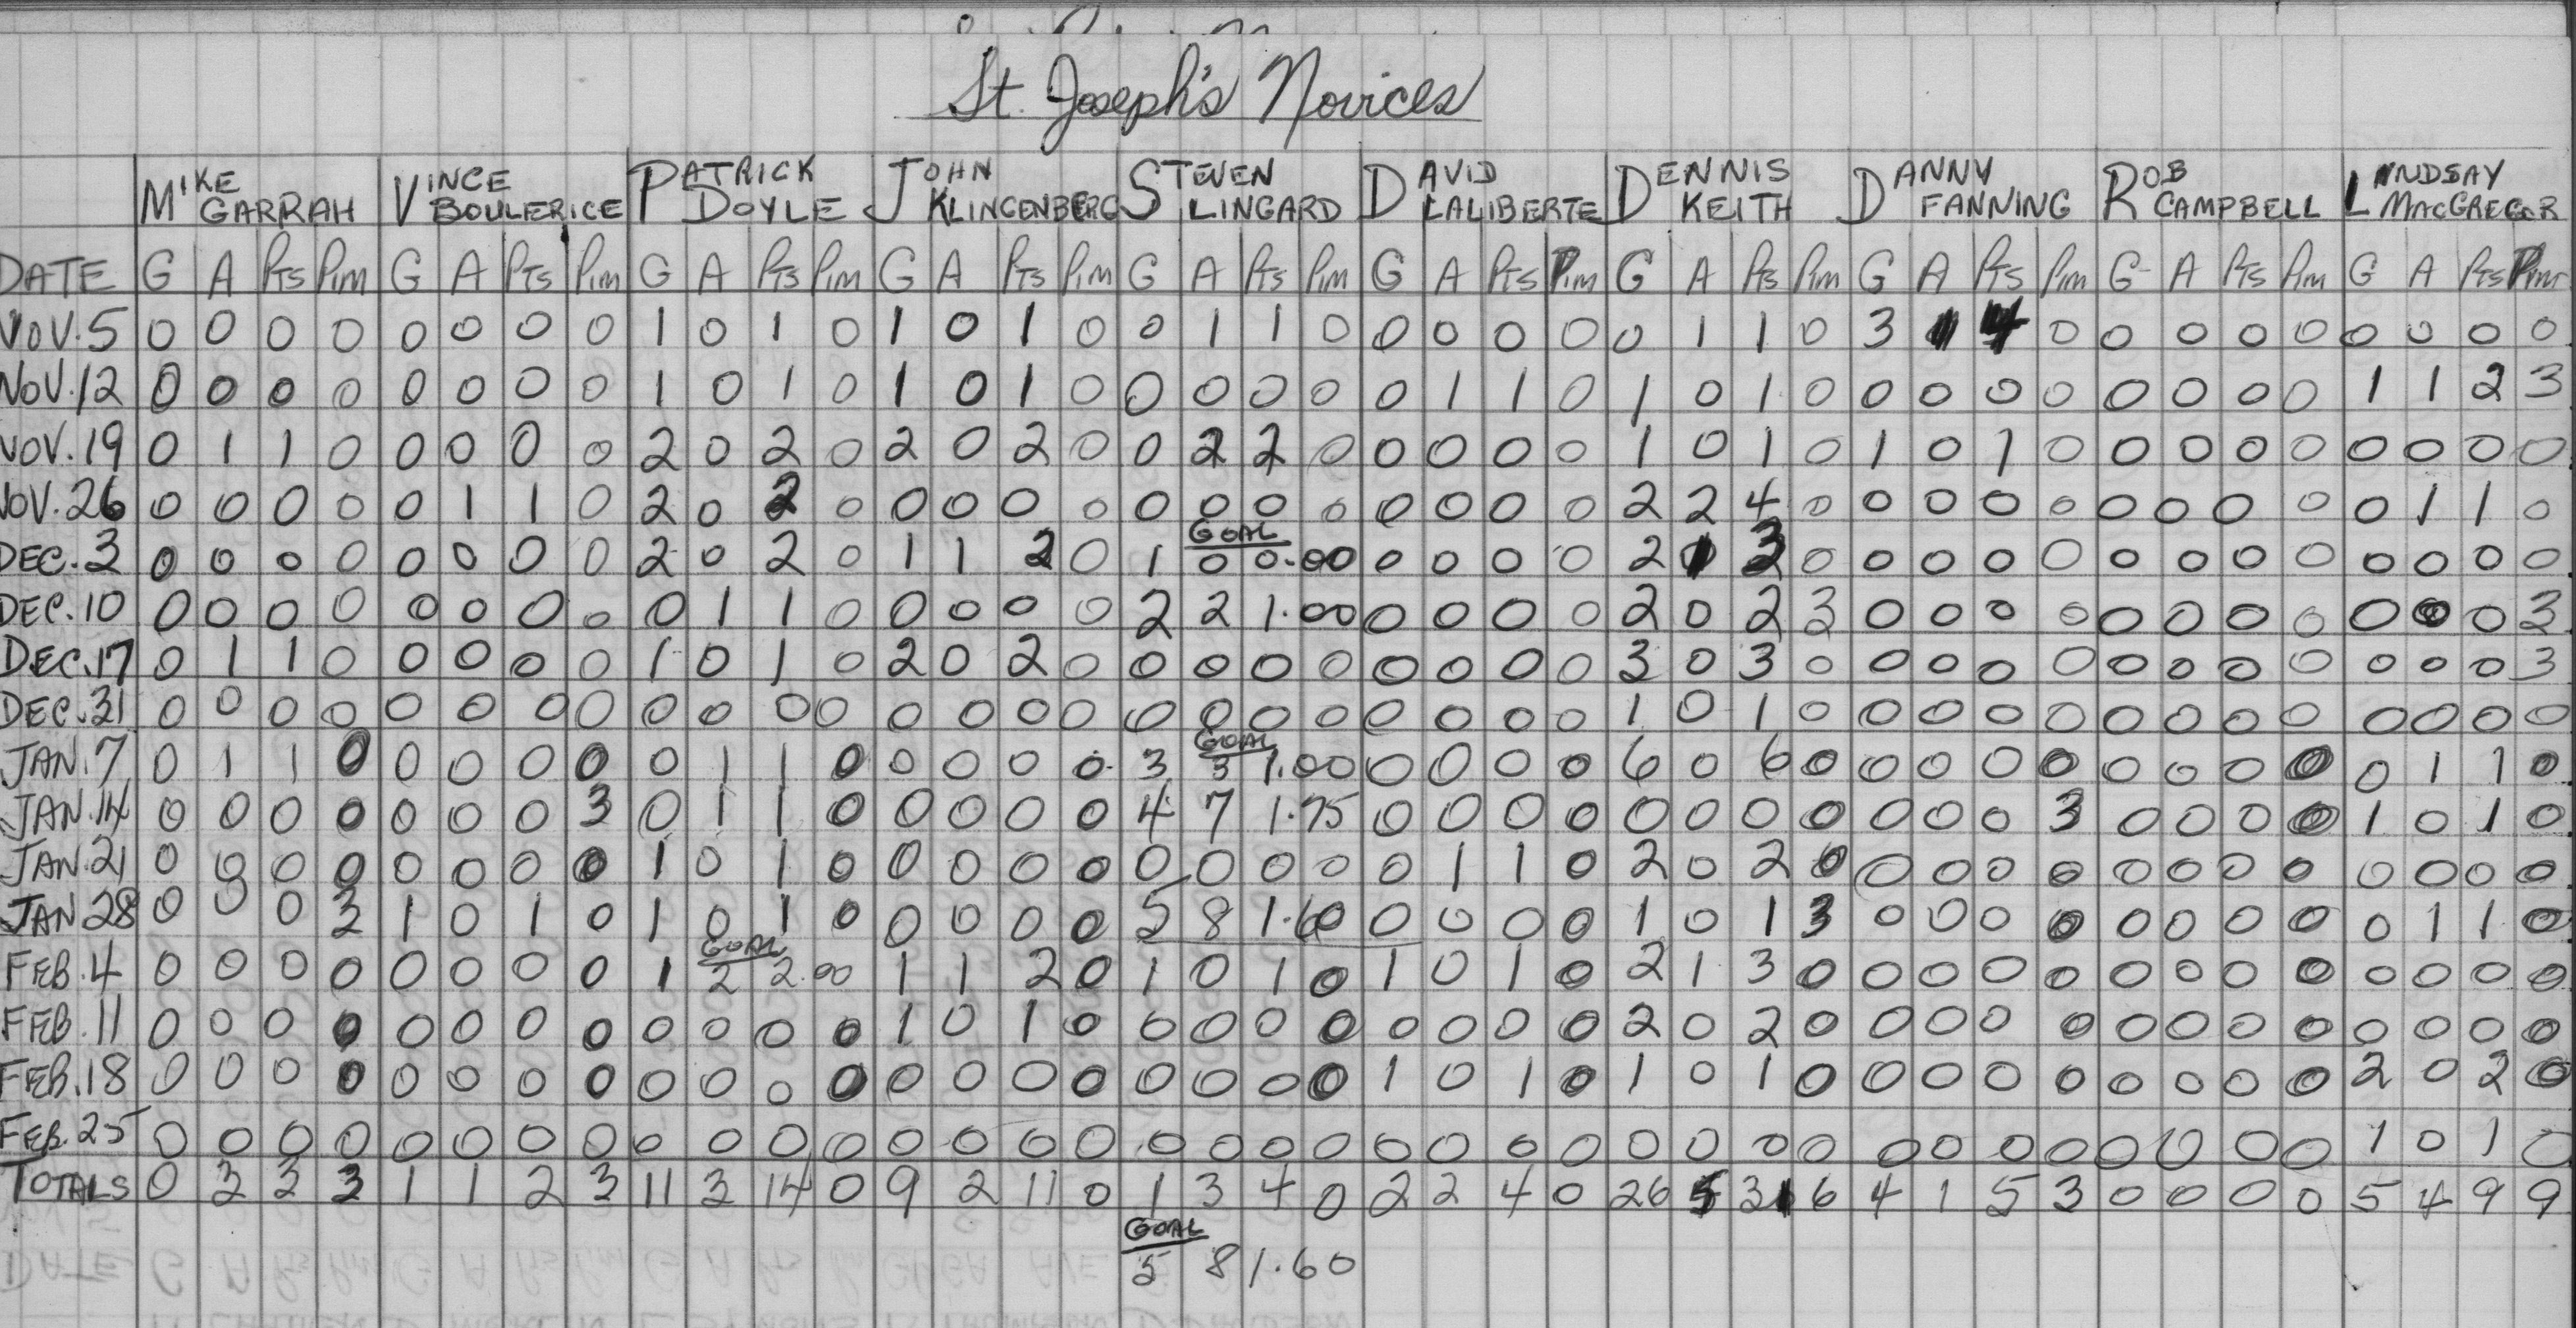 St. Joseph's Novices
MIKE GARRAH VINCE BOULERICE PATRICK DOYLE JOHN KLINGENBERG STEVEN LINGARD DAVID LALIBERTE DENNIS KEITH DANNY FANNING ROB CAMPBELL LINDSAY MACGREGOR
DATE G A PTS PIM G A PTS PIM G A PTS PIM G A PTS PIM G A PTS PIM G A PTS PIM G A PTS PIM G A PTS PIM G A PTS PIM G A PTS PIM
NOV.5 0 0 0 0 0 0 0 0 1 0 1 0 1 0 1 0 0 1 1 0 0 0 0 0 0 1 1 0 3 1 4 0 0 0 0 0 0 0 0 0
NOV.12 0 0 0 0 0 0 0 0 1 0 1 0 1 0 1 0 0 0 0 0 0 1 1 0 1 0 1 0 0 0 0 0 0 0 0 0 1 1 2 3
NOV.19 0 1 1 0 0 0 0 0 2 0 2 0 2 0 2 0 0 2 2 0 0 0 0 0 1 0 1 0 1 0 1 0 0 0 0 0 0 0 0 0
NOV.26 0 0 0 0 0 1 1 0 2 0 2 0 0 0 0 0 0 0 0 0 0 0 0 0 2 2 4 0 0 0 0 0 0 0 0 0 0 1 1 0
GOAL
DEC.3 0 0 0 0 0 0 0 0 2 0 2 0 1 1 2 0 1 0 0.00 0 0 0 0 2 1 3 0 0 0 0 0 0 0 0 0 0 0 0 0
DEC.10 0 0 0 0 0 0 0 0 0 1 1 0 0 0 0 0 2 2 1.00 0 0 0 0 2 0 2 3 0 0 0 0 0 0 0 0 0 0 0 3
DEC.17 0 1 1 0 0 0 0 0 1 0 1 0 2 0 2 0 0 0 0 0 0 0 0 0 3 0 3 0 0 0 0 0 0 0 0 0 0 0 0 3
DEC.31 0 0 0 0 0 0 0 0 0 0 0 0 0 0 0 0 0 0 0 0 0 0 0 0 1 0 1 0 0 0 0 0 0 0 0 0 0 0 0 0
GOAL
JAN.7 0 1 1 0 0 0 0 0 0 1 1 0 0 0 0 0 3 3 1.00 0 0 0 0 6 0 6 0 0 0 0 0 0 0 0 0 0 1 1 0
JAN.14 0 0 0 0 0 0 0 3 0 1 1 0 0 0 0 0 4 7 1.75 0 0 0 0 0 0 0 0 0 0 0 3 0 0 0 0 1 0 1 0
JAN.21 0 0 0 0 0 0 0 0 1 0 1 0 0 0 0 0 0 0 0 0 0 1 1 0 2 0 2 0 0 0 0 0 0 0 0 0 0 0 0 0
JAN 28 0 0 0 3 1 0 1 0 1 0 1 0 0 0 0 0 5 8 1.60 0 0 0 0 1 0 1 3 0 0 0 0 0 0 0 0 0 1 1 0
GOAL
FEB.4 0 0 0 0 0 0 0 0 1 2 2.00 1 1 2 0 1 0 1 0 1 0 1 0 2 1 3 0 0 0 0 0 0 0 0 0 0 0 0 0
FEB.11 0 0 0 0 0 0 0 0 0 0 0 0 1 0 1 0 0 0 0 0 0 0 0 0 2 0 2 0 0 0 0 0 0 0 0 0 0 0 0 0
FEB.18 0 0 0 0 0 0 0 0 0 0 0 0 0 0 0 0 0 0 0 0 1 0 1 0 1 0 1 0 0 0 0 0 0 0 0 0 2 0 2 0
FEB.25 0 0 0 0 0 0 0 0 0 0 0 0 0 0 0 0 0 0 0 0 0 0 0 0 0 0 0 0 0 0 0 0 0 0 0 0 1 0 1 0
TOTALS 0 3 3 3 1 1 2 3 11 3 14 0 9 2 11 0 1 3 4 0 2 2 4 0 26 5 31 6 4 1 5 3 0 0 0 0 5 4 9 9
GOAL
5 8 1.60